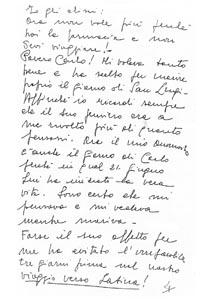 Io gli dissi:
Ora non vale più perché
hai la farmacia e non
devi viaggiare!
Povero Carlo! Mi voleva tanto
bene e ha scelto per morire
proprio il giorno di San Luigi
affinché io ricordi sempre
che il suo pensiero era a
me rivolto più di quanto
pensassi. Era il mio onomastico
e anche il giorno di Carlo
perché in quel 21 giugno
lui ha iniziato la vera
vita. Sono certo che mi
pensava e mi vedeva
mentre moriva.
Forse il suo affetto per
me ha evitato l'irreparabile
tre giorni prima nel nostro
viaggio verso Latina!